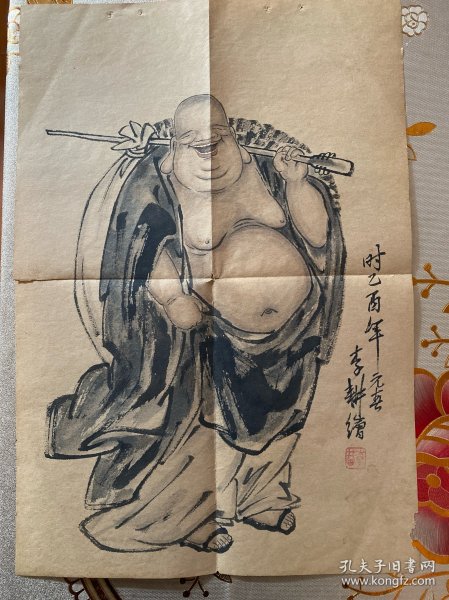 时乙酉年
元吾
李耕繪
孔夫子旧书网
www.kongfz.com